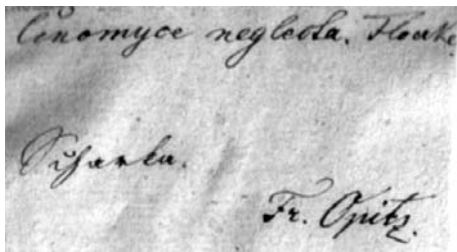 Cenomyce neglecta. Floerke.
Scharka.
Fr. Opitz.